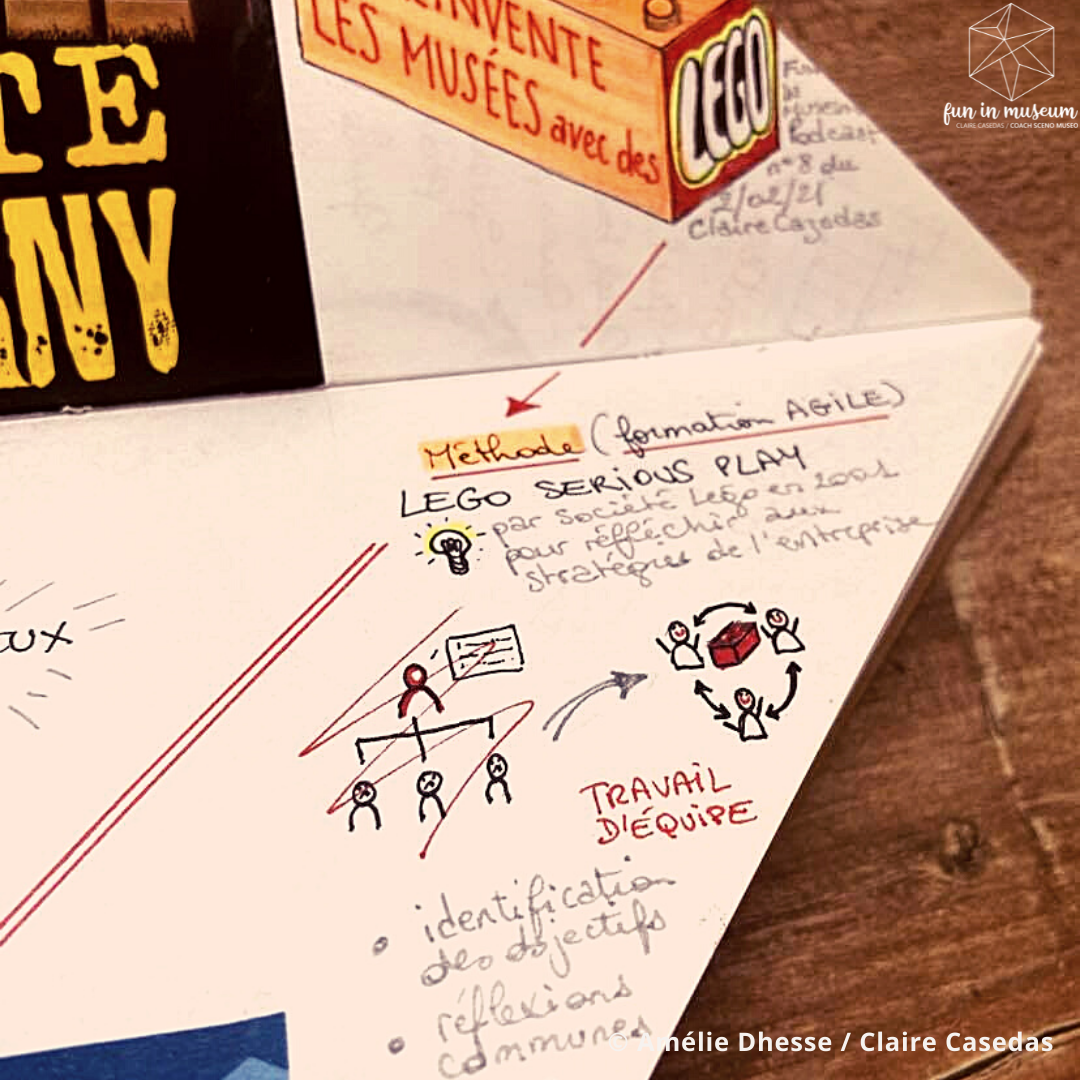 TE
NY
RÉINVENTE
LES MUSÉES avec des
LEGO
Fun
in
Museum
Podcast
n°8 du
2/02/21
Claire Cazedas
fun in museum
CLAIRE CASEDAS / COACH SCENO MUSEO
Méthode (formation AGiLE)
LEGO SERIOUS PLAY
par société Lego en 2001
pour réfléchir aux
stratégies de l'entreprise
UX
TRAVAiL
D'ÉQUiPE
• identification
des objectifs
• réflexions
communes
© Amélie Dhesse / Claire Casedas